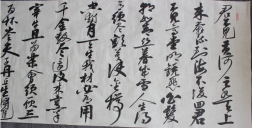 君不見黃河之水天上
來奔流到海不復回君
不見高堂明鏡悲白髮
朝如青絲暮成雪人生得
意須盡歡莫使金樽
空對月天生我材必有用
千金散盡還復來烹羊
宰牛且為樂會須飲三
百杯岑夫子丹丘生